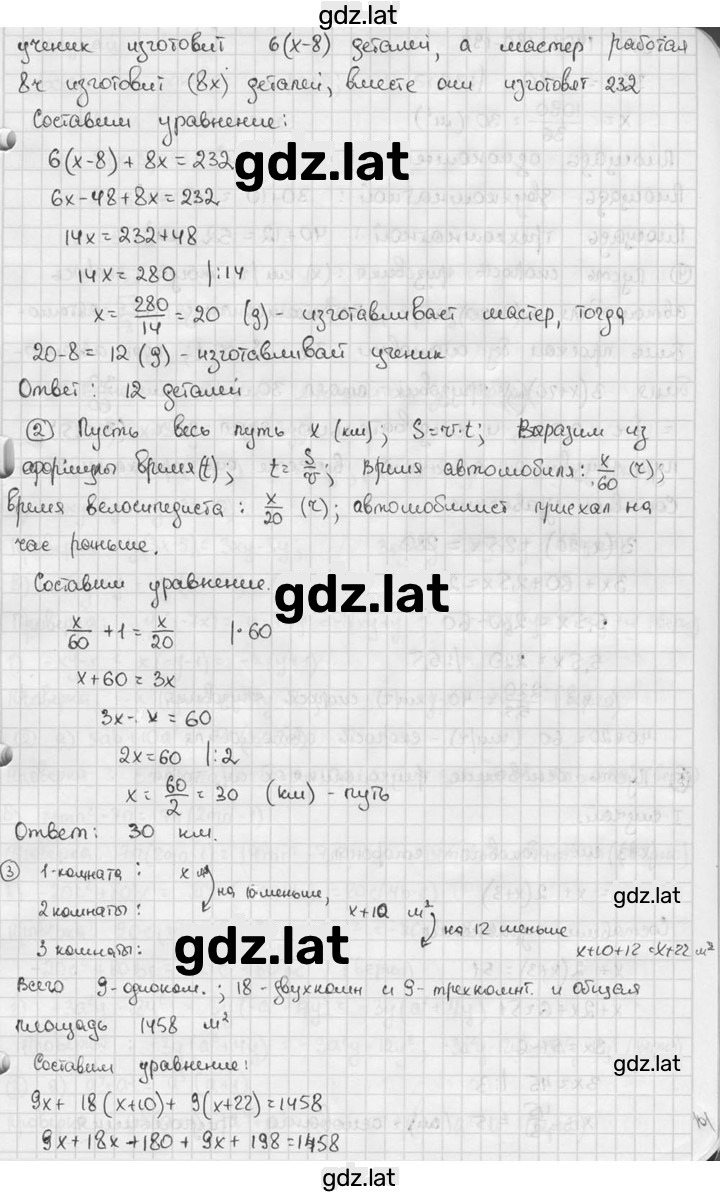 gdz.lat
ученик изготовит 6(x-8) деталей, а мастер работая
8ч изготовит (8x) деталей, вместе они изготовят 232
Составим уравнение:
6(x-8) + 8x = 232
gdz.lat
6x-48+8x = 232
14x = 232+48
14x = 280 |:14
x = 280/14 = 20 (д) - изготавливает мастер, тогда
20-8 = 12 (д) - изготавливает ученик
Ответ: 12 деталей
② Пусть весь путь x (км); S=v·t; Выразим из
формулы время(t); t = S/v; время автомобиля: x/60 (ч);
время велосипедиста: x/20 (ч); автомобилист приехал на
час раньше.
Составим уравнение.
gdz.lat
x/60 + 1 = x/20 |·60
x+60 = 3x
3x-x = 60
2x=60 |:2
x = 60/2 = 30 (км) - путь
Ответ: 30 км.
③ 1-комната: x м² на 10 меньше,
gdz.lat
2 комнаты: x+10 м² на 12 меньше
gdz.lat
3 комнаты: x+10+12 = x+22 м²
Всего 9-одноком.; 18-двухкомн и 9-трехкомнт. и общая
площадь 1458 м²
Составим уравнение:
gdz.lat
9x+ 18(x+10)+ 9(x+22)=1458
9x+18x+180 + 9x+ 198=1458
gdz.lat